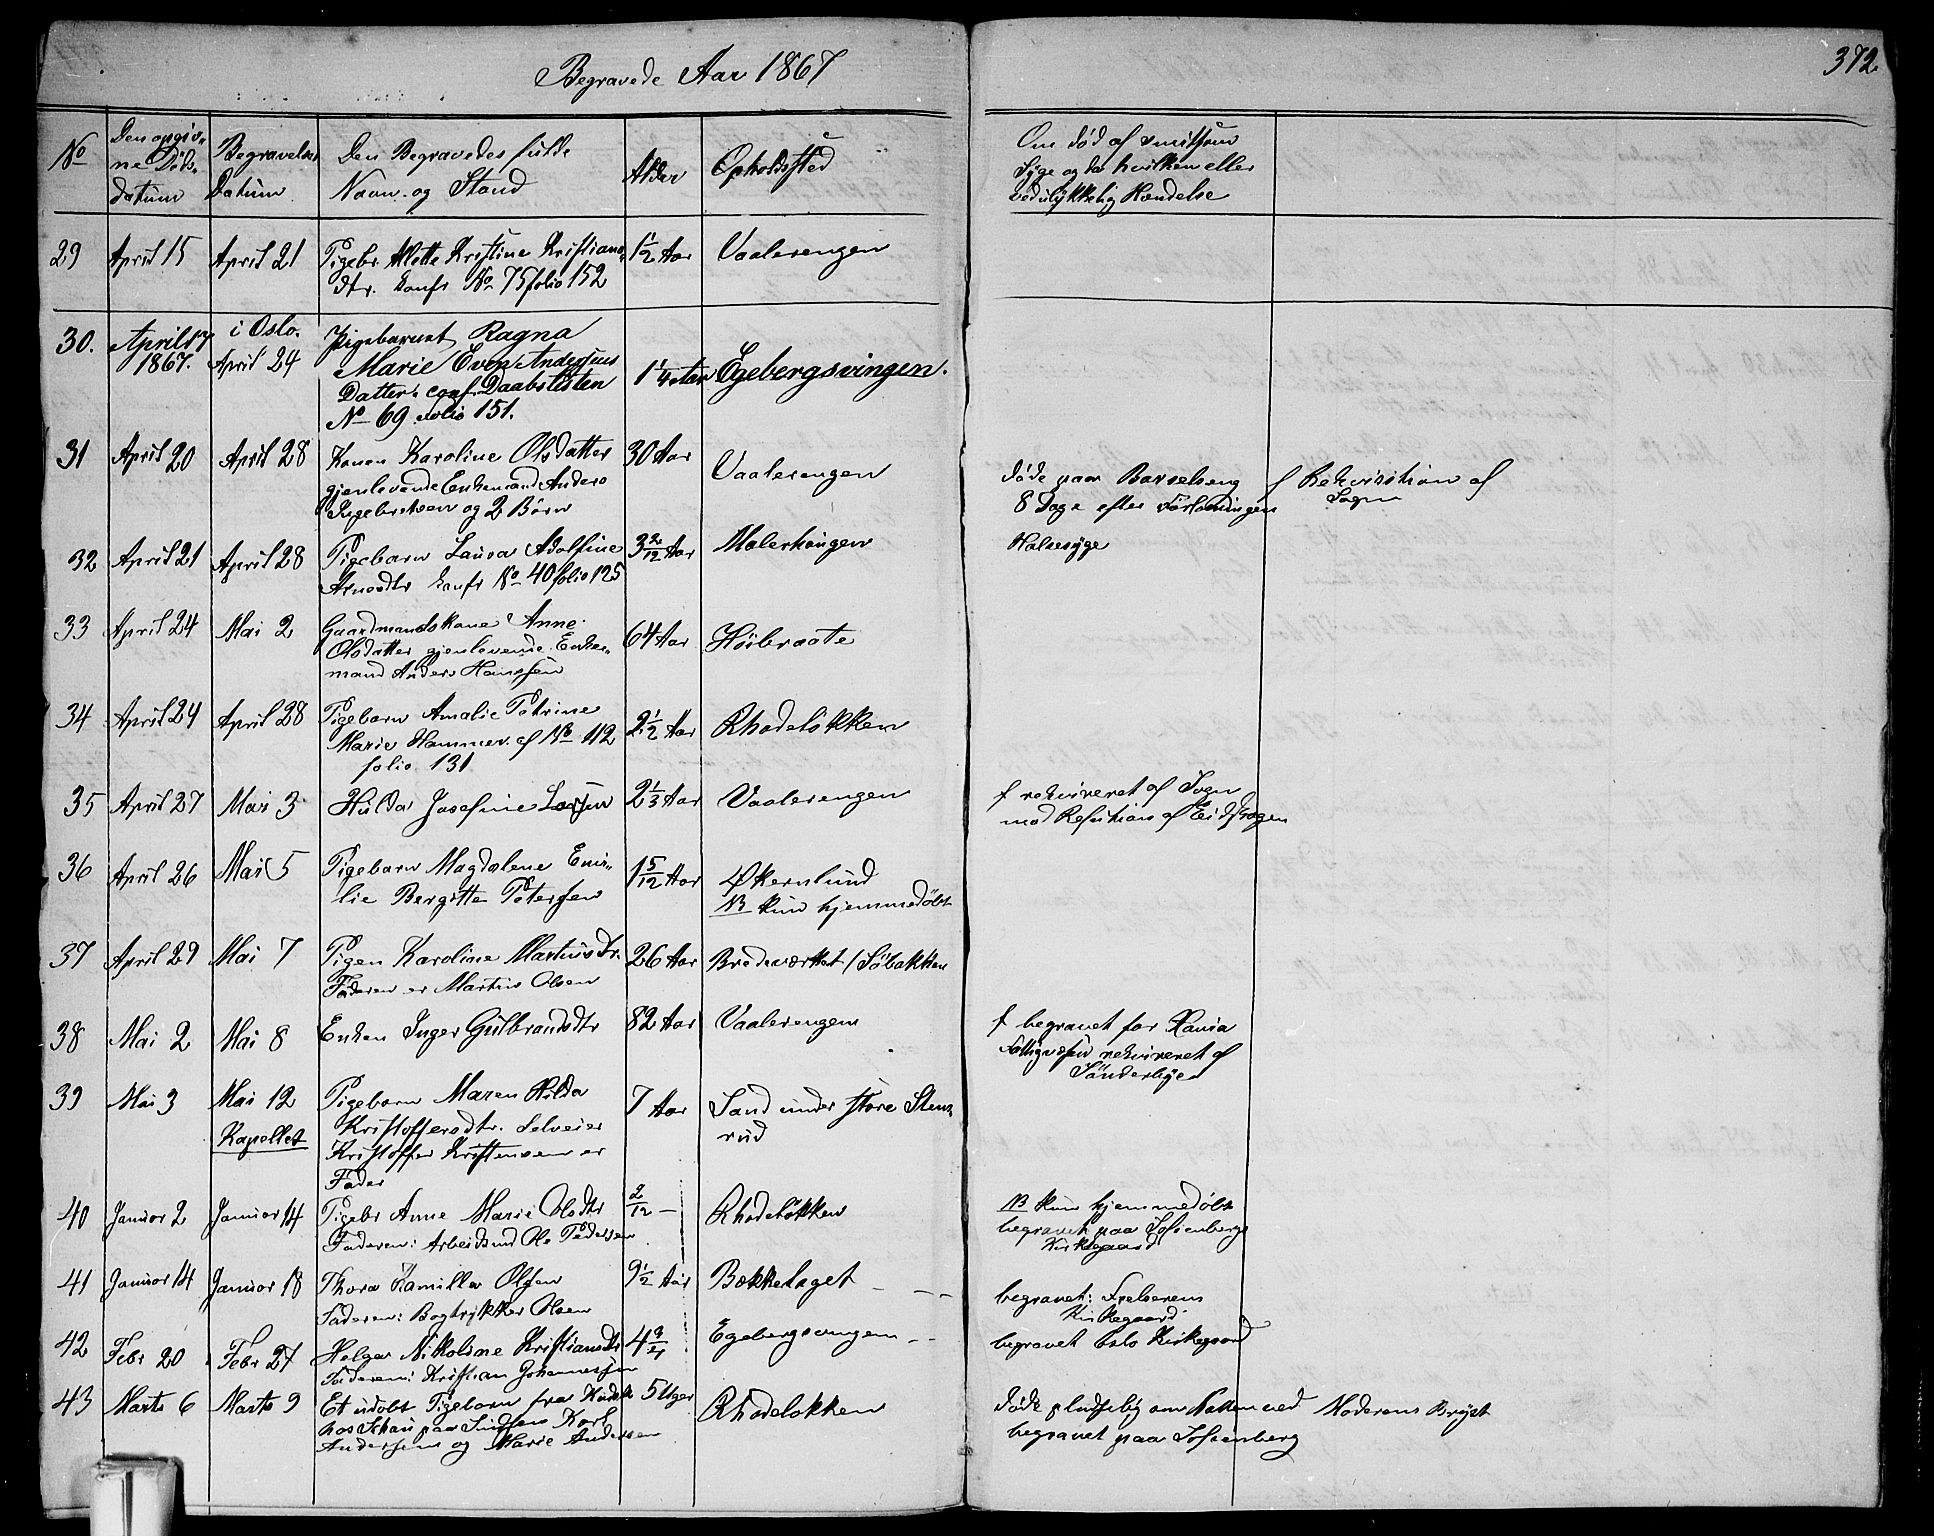 Begravede Aar 1867
372
No
Den opgiv-
ne Døds-
datum
Begravelses
Datum
Den Begravedes fulde
Navn og Stand
Alder
Opholdssted
Om død af smitsom
Syge og da hvilken eller
ved ulykkelig Hændelse
29 April 15 April 21 Pigebr. Alette Kristine Kristians-
dtr. konfr No 75 folio 152
1 1/2 Aar Vaalerengen
30. April 17
1867.
i Oslo.
April 24
Pigebarnet Ragna
Marie Even Andersens
Datter. conf. Daabslisten
No 69 folio 151.
1 1/4 Aar Egebergsvingen.
31 April 20 April 28 Konen Karoline Olsdatter
gjenlevende Enkemand Anders
Ingebretsen og 2 Börn
30 Aar Vaalerengen
döde paa Barselseng
8 Dage efter Forlösningen
f Rekvisition af
Sogn
32 April 21 April 28 Pigebarn Laura Adolfine
Arnesdtr konfr No 40 folio 125
3 2/12 Aar Malerhaugen
Halssyge
33 April 24 Mai 2 Gaardmandskone Anne
Olsdatter gjenlevende Enke-
mand Anders Hanssen
64 Aar Høibraate
34 April 24 April 28 Pigebarn Amalie Petrine
Marie Hammer. cf No 112
folio 131
2 1/2 Aar Rhodeløkken
35 April 27 Mai 3 Hulda Josefine Larsen
2 1/3 Aar Vaalerengen
f rekvireret af Sogn
mod Refusion af
36 April 26 Mai 5 Pigebarn Magdalene Emi-
lie Bergitte Petersen
1 5/12 Aar Økernlund
NB kun hjemmedøbt
37 April 29 Mai 7 Pigen Karoline Martinsdtr.
Faderen er Martin Olsen
26 Aar Bredeværket / Söbakken
38 Mai 2 Mai 8 Enken Inger Gulbrandsdtr
82 Aar Vaalerengen
f begravet for Xania
Fattigvæsen rekvireret af
Sönderbye
39 Mai 3 Mai 12
Kapellet
Pigebarn Maren Hilda
Kristoffersdtr. Selveier
Kristoffer Kristensen er
Fader
7 Aar Sand under store Stens-
rud
40 Januar 2 Januar 14 Pigebr Anne Marie Olsdtr
Faderen: Arbeidsmd Ole Pedersen
2/12 — Rhodeløkken
NB kun hjemmedøbt
begravet paa Sofienbergs
Kirkegaard
41 Januar 14 Januar 18 Thora Kamilla Olsen
Faderen: Bogtrykker Olsen
9 1/2 Aar Bækkelaget
begravet: Frelserens
Kirkegaard
42 Febr 20 Febr 27 Helga Nikoline Kristiansdtr
Faderen: Kristian Johannessen
4 3/4 Egebergsvingen
begravet Oslo Kirkegaard
43 Marts 6 Marts 9 Et udöbt Pigebarn
paa Karl
Andersen og Marie Andersen
5 Uger Rhodeløkken
döde pludselig om Natten ved Moderens Bryst
begravet paa Sofienberg